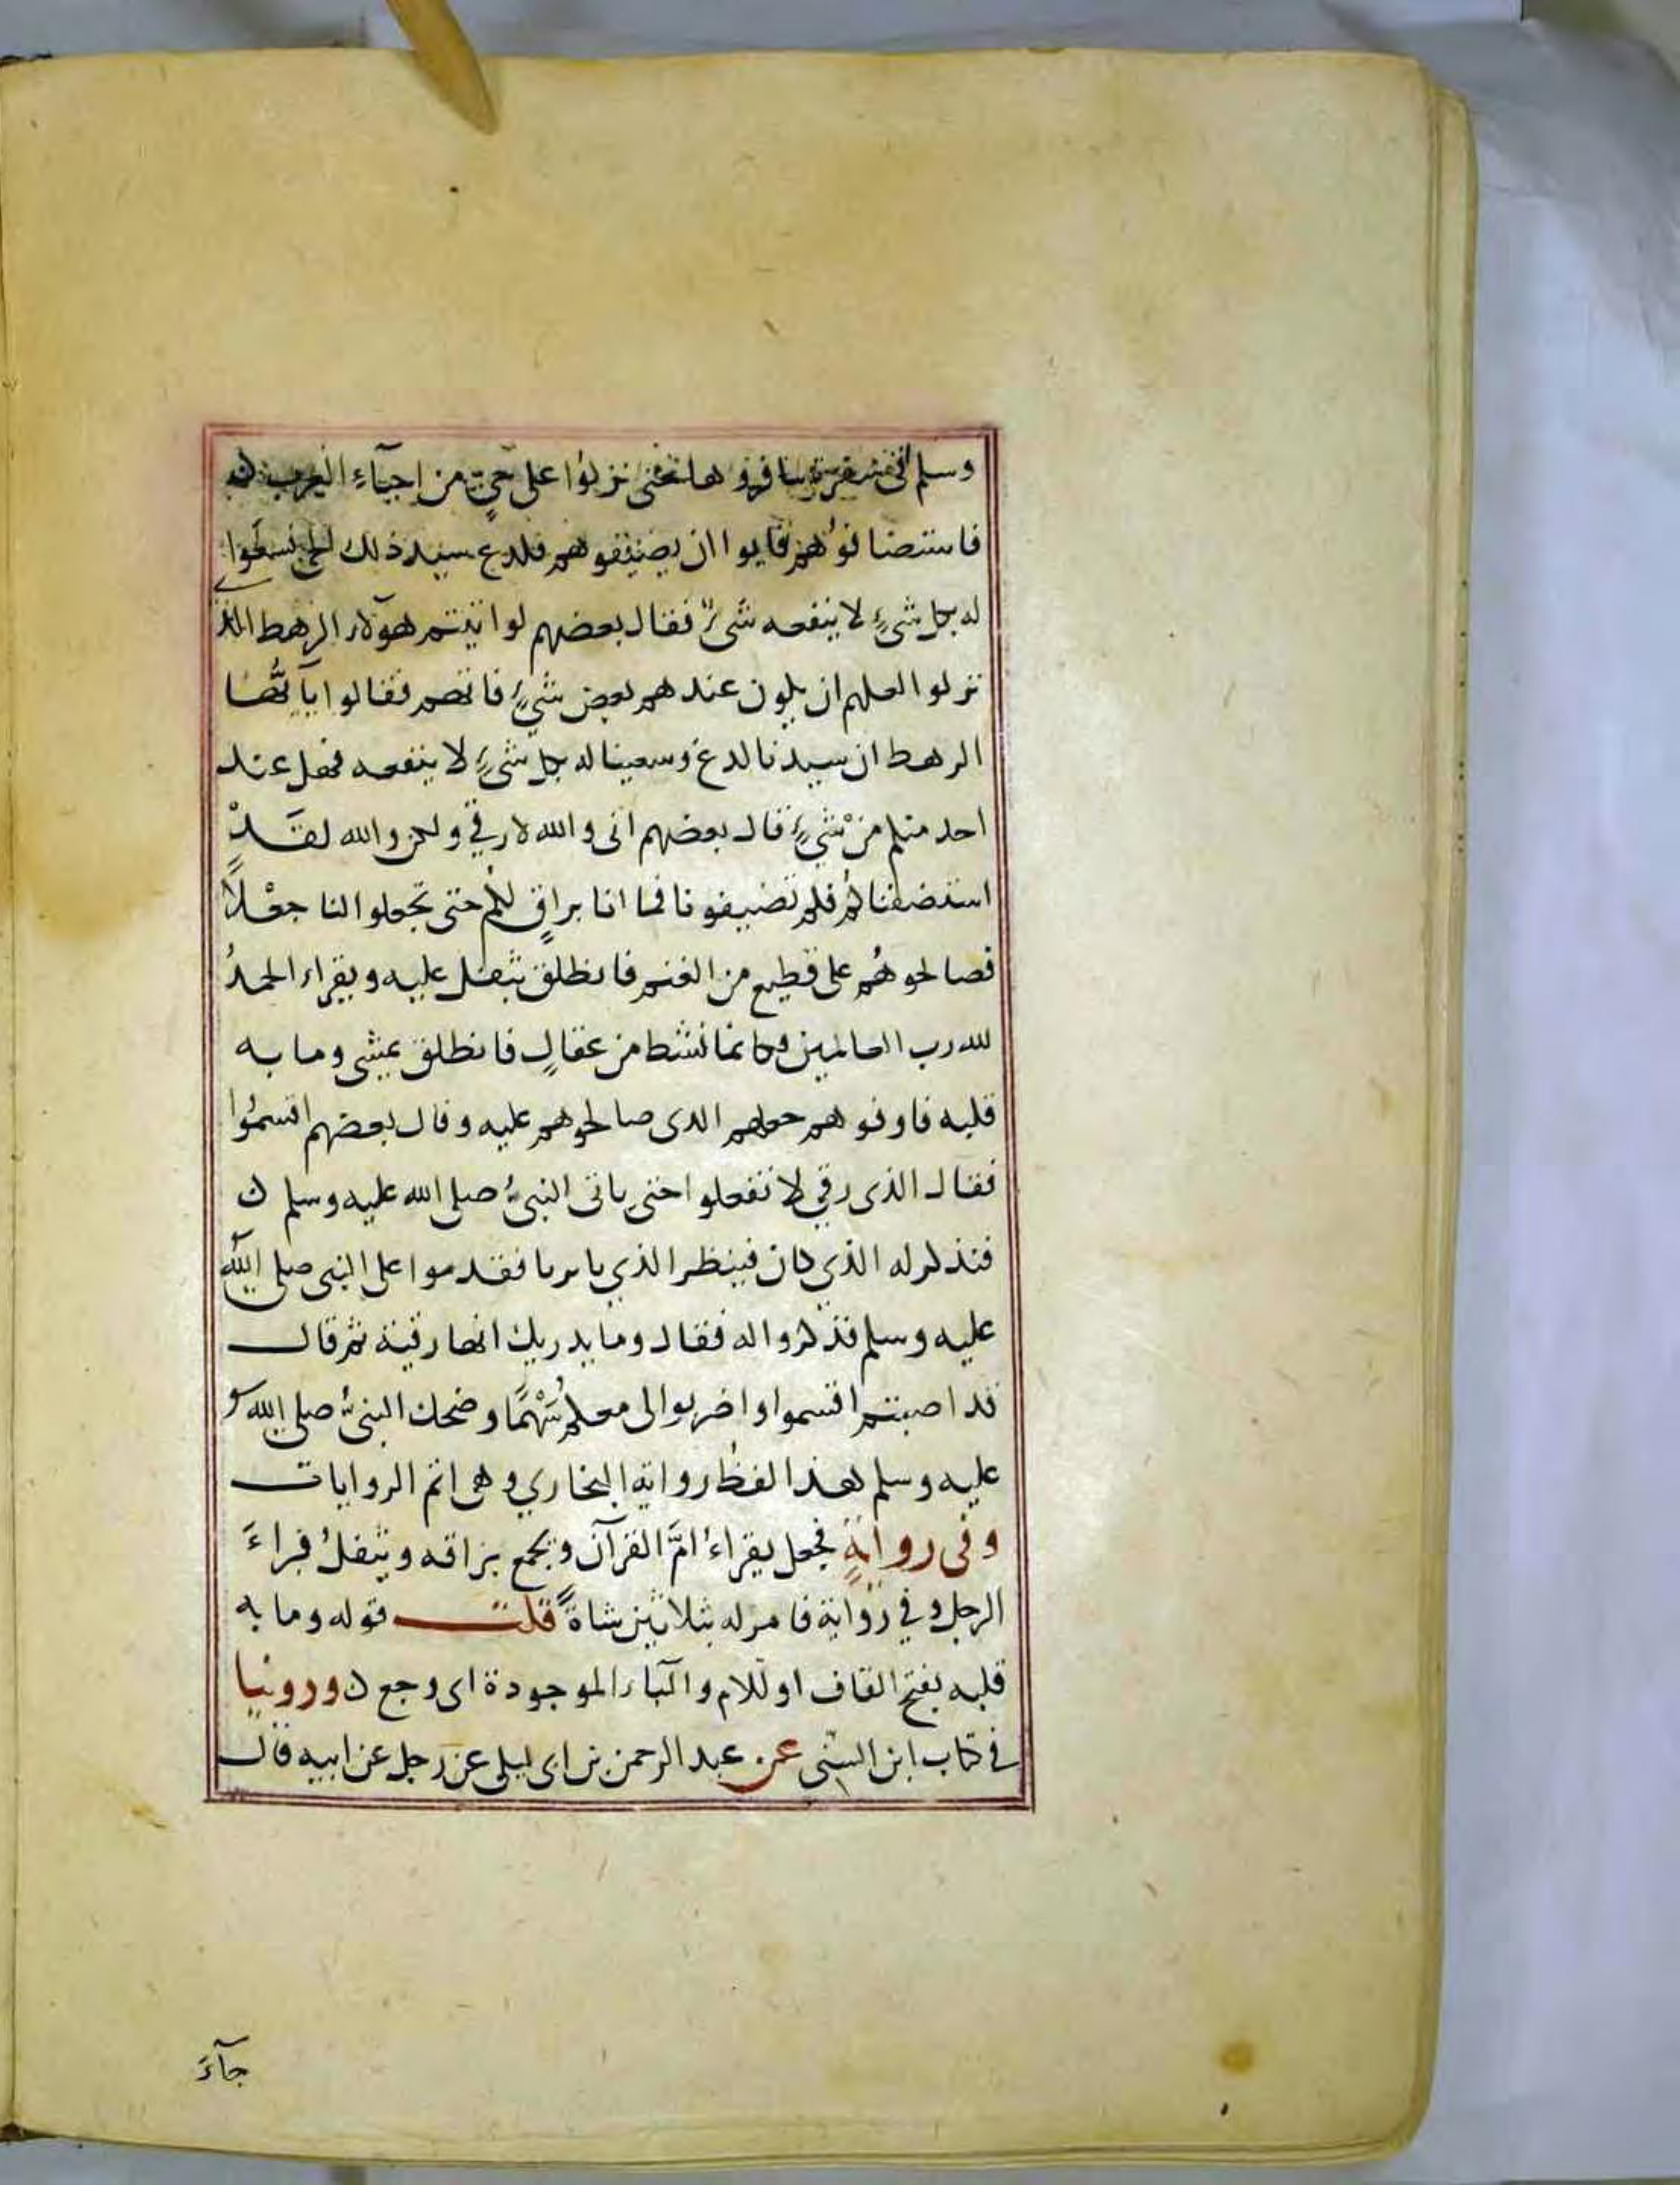 وسلم في سفرة سافروها حتى نزلوا على حيٍّ من احيآءِ العرب
فاستضافوُهم فابوا ان يضيفوهم فلدع سيد ذلك الحي فسعَوا
له بكل شيءٍ لا ينفعه شيءٌ فقال بعضهم لو اتيتم هوٓلاء الرهط الذ
نزلوا لعلهم ان يكون عندهم بعض شيءٍ فاتوهم فقالوا يآ ايُّها
الرهط ان سيدنا لدغ وسعينا له بكل شيءٍ لا ينفعه فهل عند
احد منكم منْ شيءٍ قال بعضهم انى والله لارقي ولكن والله لقَدْ
استضفناكُم فلم تضيفونا فما انا براقٍ لكُم حتى تجعلوا لنا جعْلاً
فصالحوهُم على قطيع من الغنم فانطلق يتفل عليه ويقراء الحمدُ
لله رب العالمين فكانما نشط من عقالٍ فانطلق يمشى وما به
قلبه فاوفوهم جعلهم الدى صالحوهم عليه وقال بعضهم اقسمُوا
فقال الذى رقي لا تفعلوا حتى ياتى النبيُّ صلى الله عليه وسلم ن
فنذكر له الذي كان فينظر الذي يامرنا فقدموا على النبى صلى الله
عليه وسلم فذكروا له فقال وما يدريك انها رقية ثم قال
قد اصبتم اقسموا واضربوا لى معكم سَهْمًا وضحك النبيُّ صلى الله
عليه وسلم هذا لفظ رواية البخاري وهى اتم الروايات
وفى روايةٍ فجعل يقراءُ امَّ القرآن ويجمع بزاقه ويتفلُ فبراءَ
الرجل وفي رواية فامر له بثلاثين شاةً قلت قوله وما به
قلبه بفتح القاف اوللام والبآء الموجودة اى وجع ن وروينا
في كتاب ابن السنّى عن عبد الرحمن بن ابى ليلى عن رجل عن ابيه قال
جآءَ